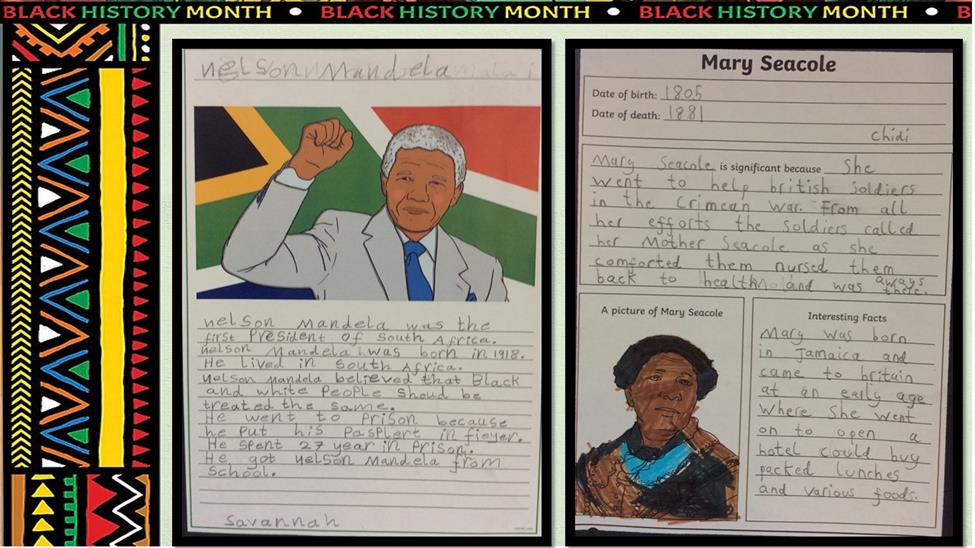 BLACK HISTORY MONTH • BLACK HISTORY MONTH • BLACK HISTORY MONTH • B
nelson Mandela
nelson Mandela was the
first President of South Africa.
nelson Mandela was born in 1918.
He lived in South Africa.
nelson Mandela believed that Black
and white People shoud be
treated the same.
He went to Prison because
he put his Pasplert in fieyer.
He spent 27 year in Prison.
He got nelson Mandela from
School.
Savannah
Mary Seacole
Date of birth: 1805
Date of death: 1881
Chidi
Mary Seacole is significant because She
went to help british soldiers
in the Crimean War. From all
her efforts the soldiers called
her Mother Seacole as she
comforted them nursed them
back to health and was aways
there.
A picture of Mary Seacole
Interesting Facts
Mary was born
in Jamaica and
came to britain
at an early age
where she went
on to open a
hotel could buy
packed lunches
and various foods.